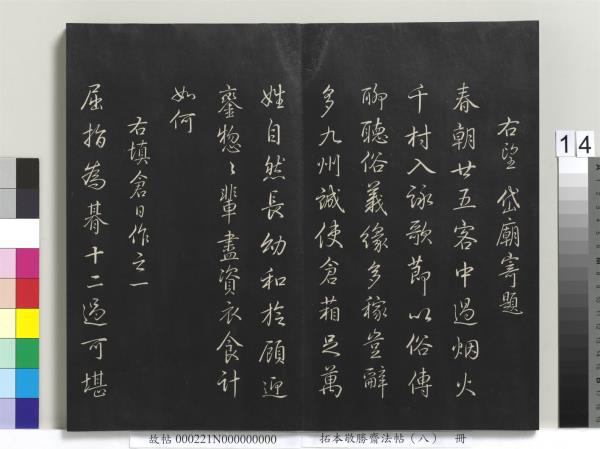 右望岱廟寄題
春朝廿五客中過烟火
千村入詠歌節以俗傳
聊聽俗義緣多稼豈辭
多九州誠使倉箱足萬
姓自然長幼和於顧迎
鑾惣〻輩盡資衣食計
如何
右填倉日作之一
屈指為碁十二過可堪
14
故帖 000221N000000000 拓本敬勝齋法帖（八） 冊